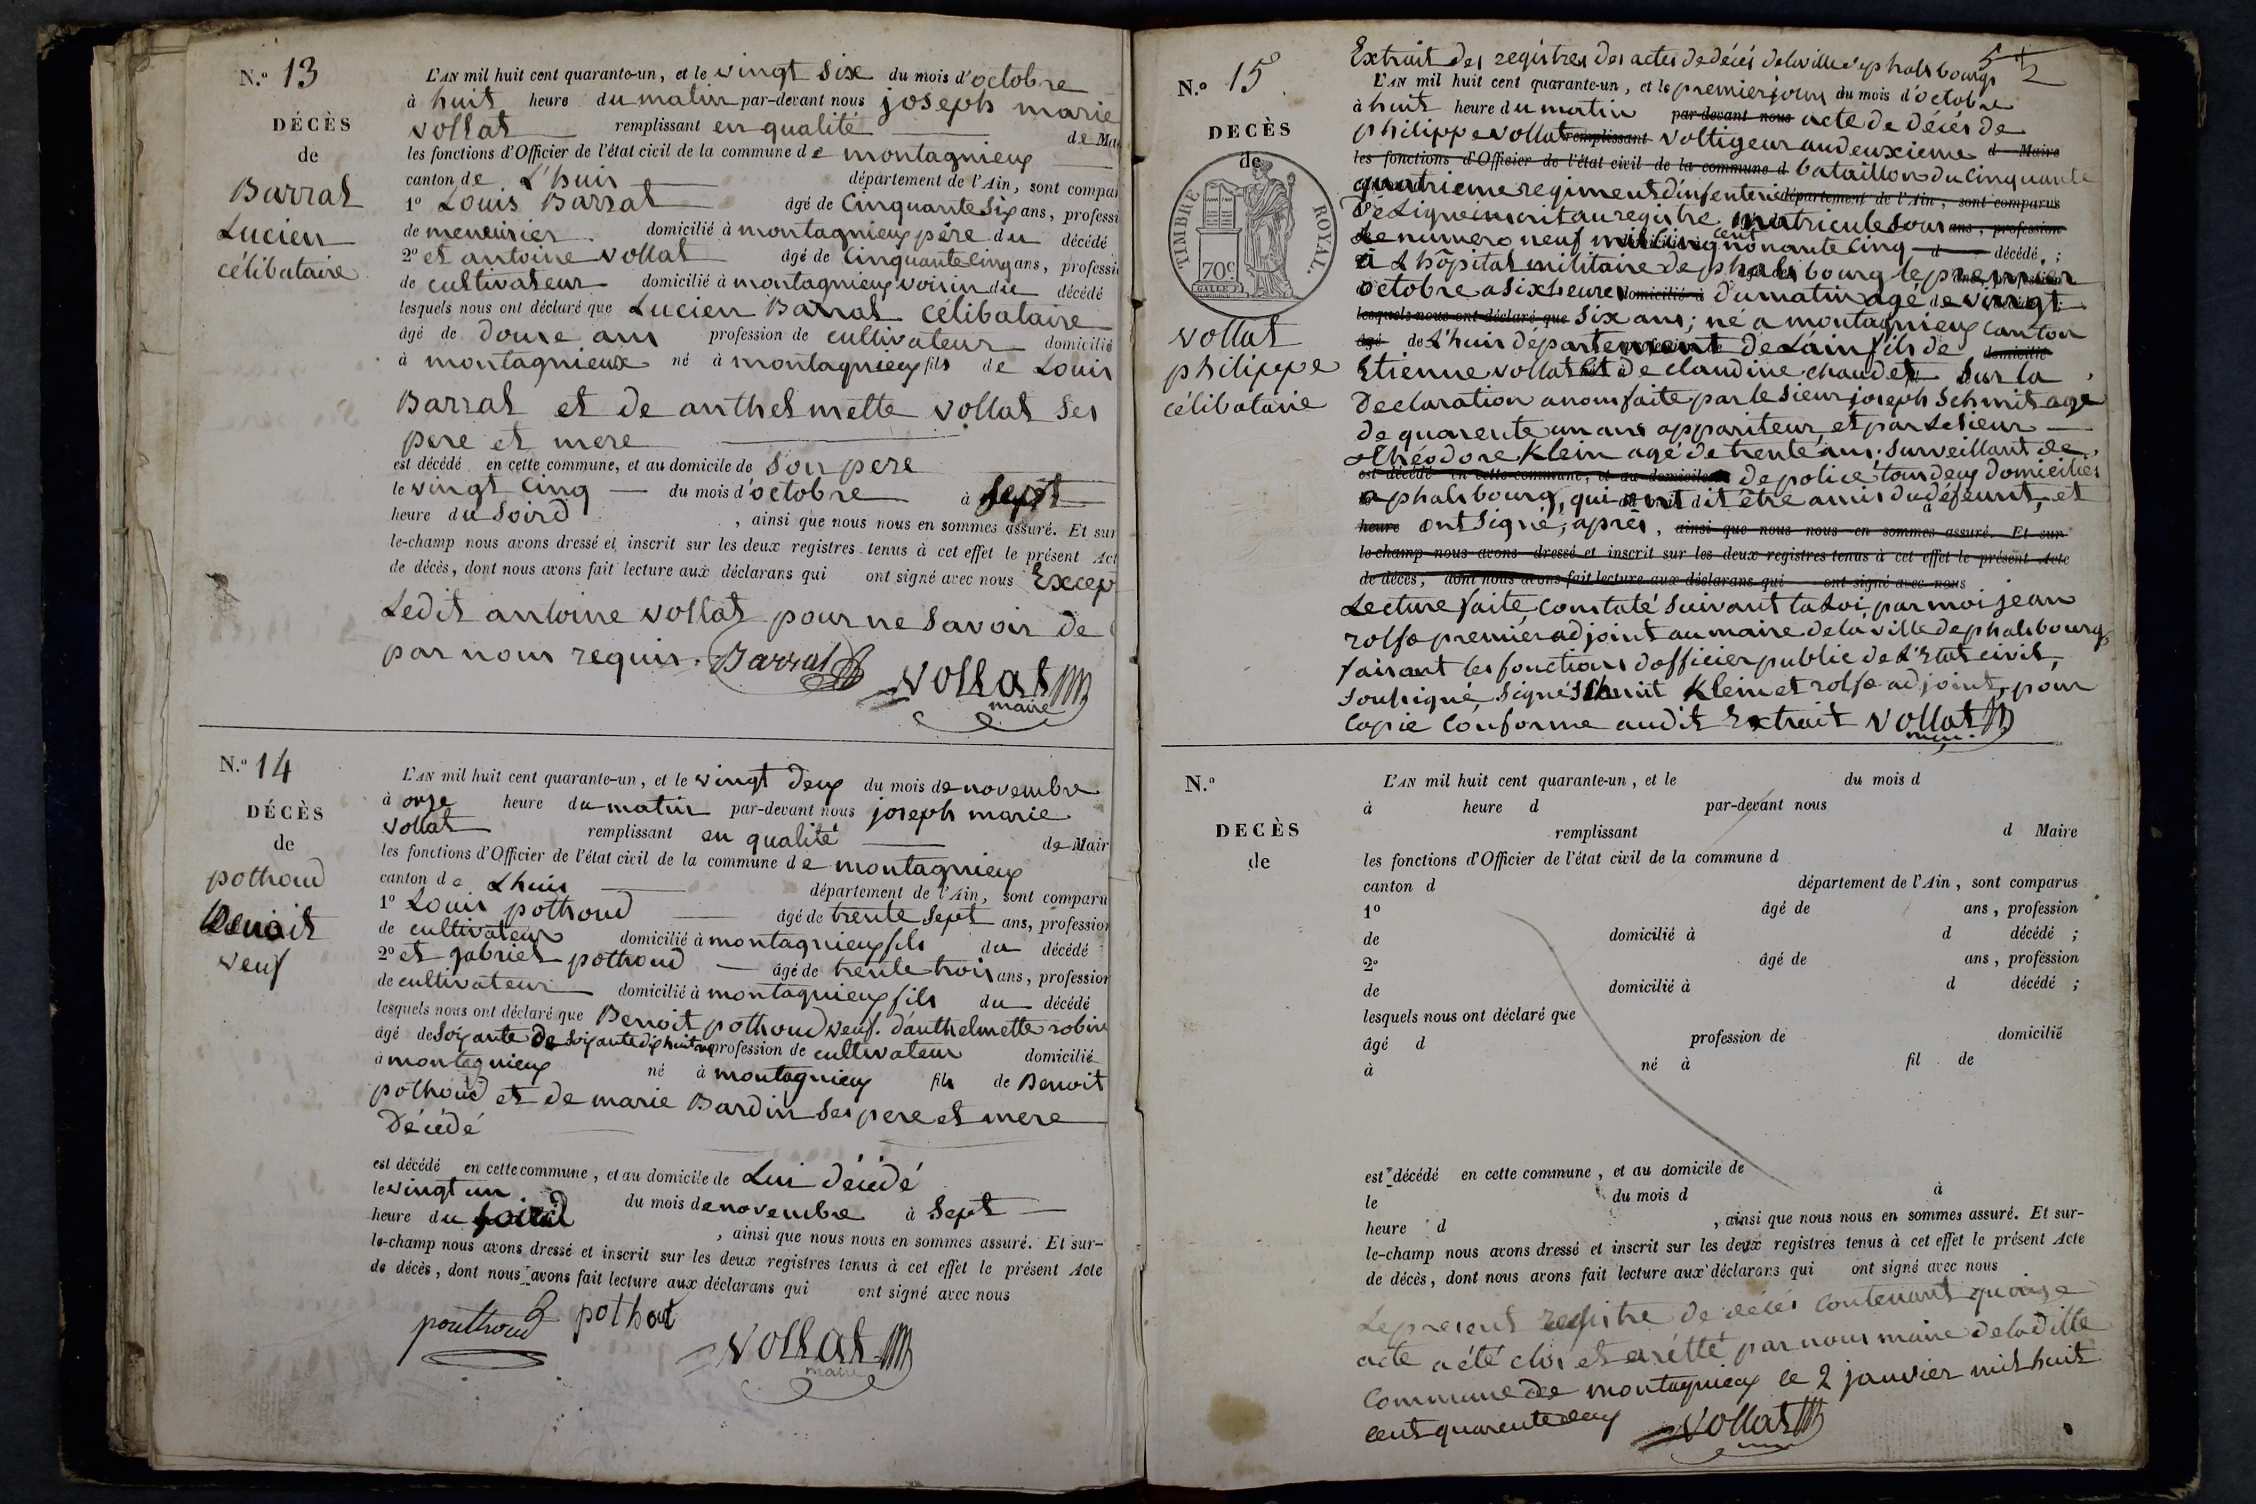 N.º 13
DÉCÈS
de
Barrat
Lucien
célibataire
L'AN mil huit cent quarante-un, et le vingt six du mois d'octobre
à huit heure du matin par-devant nous joseph marie
vollat remplissant en qualité de Mai
les fonctions d'Officier de l'état civil de la commune de montagnieux
canton de L'huis département de l'Ain, sont compar
1º Louis Barrat âgé de Cinquante six ans, professi
de menuisier domicilié à montagnieux père du décédé
2º et antoine vollat âgé de Cinquante cinq ans, professi
de cultivateur domicilié à montagnieux voisin du décédé
lesquels nous ont déclaré que Lucien Barrat célibataire
âgé de douze ans profession de cultivateur domicilié
à montagnieux né à montagnieux fils de Louis
Barrat et de anthelmette vollat ses
pere et mere
est décédé en cette commune, et au domicile de son pere
le vingt cinq du mois d'octobre à sept
heure du soird, ainsi que nous nous en sommes assuré. Et sur
le-champ nous avons dressé et inscrit sur les deux registres tenus à cet effet le présent Act
de décès, dont nous avons fait lecture aux déclarans qui ont signé avec nous Excep
Ledit antoine vollat pour ne savoir de
par nous requis. Barrat vollat
maire
N.º 14
DÉCÈS
de
pothoud
Benoit
veuf
L'AN mil huit cent quarante-un, et le vingt deux du mois de novembre
à onze heure du matin par-devant nous joseph marie
vollat remplissant en qualité de Mair
les fonctions d'Officier de l'état civil de la commune de montagnieux
canton de Lhuis département de l'Ain, sont comparu
1º Louis pothoud âgé de trente sept ans, profession
de cultivateur domicilié à montagnieux fils du décédé
2º et gabriel pothoud âgé de trente trois ans, profession
de cultivateur domicilié à montagnieux fils du décédé
lesquels nous ont déclaré que Benoit pothoud veuf d'anthelmette robin
âgé de soixante de soixante dix huit ans profession de cultivateur domicilié
à montagnieux né à montagnieux fils de Benoit
pothoud et de marie Bardin ses pere et mere
Décédé
est décédé en cette commune, et au domicile de Lui décédé
le vingt un du mois de novembre à sept
heure du soird, ainsi que nous nous en sommes assuré. Et sur-
le-champ nous avons dressé et inscrit sur les deux registres tenus à cet effet le présent Acte
de décès, dont nous avons fait lecture aux déclarans qui ont signé avec nous
pouthoud pothout
vollat
maire
5
2
N.º 15
DECÈS
de
TIMBRE ROYAL.
70c
vollat
philippe
célibatarie
Extrait des registres des actes de décés de la ville de phalsbourg
L'AN mil huit cent quarante-un, et le premier jour du mois d'octobre
à huit heure du matin par-devant nous acte de décés de
philippe vollat remplissant voltigeur au deuxieme d Maire
les fonctions d'Officier de l'état civil de la commune d bataillon du cinquante
quatrieme regiment dinfenterie département de l'Ain, sont comparus
De Ligne inscrit au registre matricule sous ans, profession
Le numero neuf mil cinq cent nonante cinq d décédé;
à L'hôpital militaire de phalsbourg le premier
octobre a six heures domicilié à du matin agé de vingt
lesquels nous ont déclaré que six ans; né a montagnieux canton
âgé de L'huis département de Lain fils de domicilié
Etienne vollat et de claudine chaudet sur la
Declaration a nous faite par le sieur joseph schmit age
de quarente un ans appariteur et par Le sieur
théodore Klein agé de trente ans surveillant de
est décédé en cette commune, et au domicile de de police tous deux domiciliés
a phalsbourg, qui ont dit être amis du défeunt, et
heure ont signé, après, ainsi que nous nous en sommes assuré. Et sur-
le-champ nous avons dressé et inscrit sur les deux registres tenus à cet effet le présent Acte
de décès, dont nous avons fait lecture aux déclarans qui ont signé avec nous
Lecture faite constaté suivant la Loi, par moi jean
rolfe premier adjoint au maire de la ville de phalsbourg,
faisant les fonctions dofficier public de L'Etat civil,
soussigné, signé schmit Klein et rolfe adjoint, pour
copie conforme audit Extrait vollat
N.º
DECÈS
de
L'AN mil huit cent quarante-un, et le du mois d
à heure d par-devant nous
remplissant d Maire
les fonctions d'Officier de l'état civil de la commune d
canton d département de l'Ain, sont comparus
1º âgé de ans, profession
de domicilié à d décédé;
2º âgé de ans, profession
de domicilié à d décédé;
lesquels nous ont déclaré que
âgé d profession de domicilié
à né à fil de
est décédé en cette commune, et au domicile de
le du mois d à
heure d, ainsi que nous nous en sommes assuré. Et sur-
le-champ nous avons dressé et inscrit sur les deux registres tenus à cet effet le présent Acte
de décès, dont nous avons fait lecture aux déclarans qui ont signé avec nous
Le present registre de décés contenant quinze
acte a été clos et arétté par nous maire de la ditte
commune de montagnieux le 2 janvier mil huit
cent quarente deux vollat